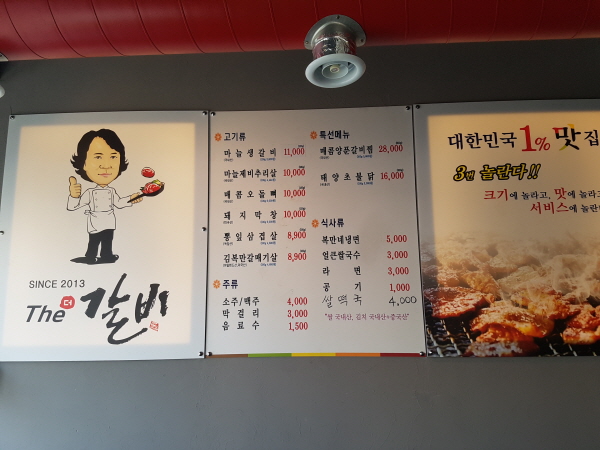 SINCE 2013
The 더 갈비
고기류
마늘생갈비 11,000
마늘제비추리살 10,000
매콤오돌뼈 10,000
돼지막창 10,000
통일삼겹살 8,900
김목만갈매기살 8,900
주류
소주/맥주 4,000
막걸리 3,000
음료수 1,500
특선메뉴
매콤양푼갈비찜 28,000
태양초불닭 16,000
식사류
복만네냉면 5,000
얼큰쌀국수 3,000
라면 3,000
공기 1,000
쌀떡국 4,000
"쌀 국내산, 김치 국내산+중국산"
대한민국 1% 맛집
3번 놀란다!!
크기에 놀라고, 맛에 놀라
서비스에 놀란